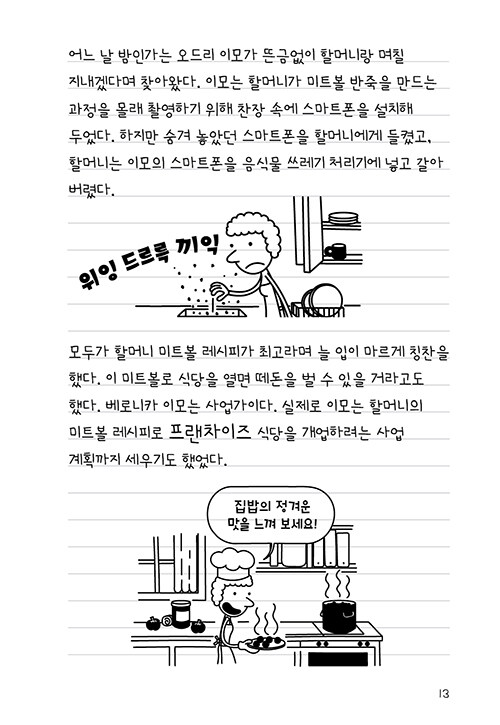 어느 날 밤인가는 오드리 이모가 뜬금없이 할머니랑 며칠
지내겠다며 찾아왔다. 이모는 할머니가 미트볼 반죽을 만드는
과정을 몰래 촬영하기 위해 찬장 속에 스마트폰을 설치해
두었다. 하지만 숨겨 놓았던 스마트폰을 할머니에게 들켰고,
할머니는 이모의 스마트폰을 음식물 쓰레기 처리기에 넣고 갈아
버렸다.
위잉 드르륵 끼익
모두가 할머니 미트볼 레시피가 최고라며 늘 입이 마르게 칭찬을
했다. 이 미트볼로 식당을 열면 떼돈을 벌 수 있을 거라고도
했다. 베로니카 이모는 사업가이다. 실제로 이모는 할머니의
미트볼 레시피로 프랜차이즈 식당을 개업하려는 사업
계획까지 세우기도 했었다.
집밥의 정겨운
맛을 느껴 보세요!
13